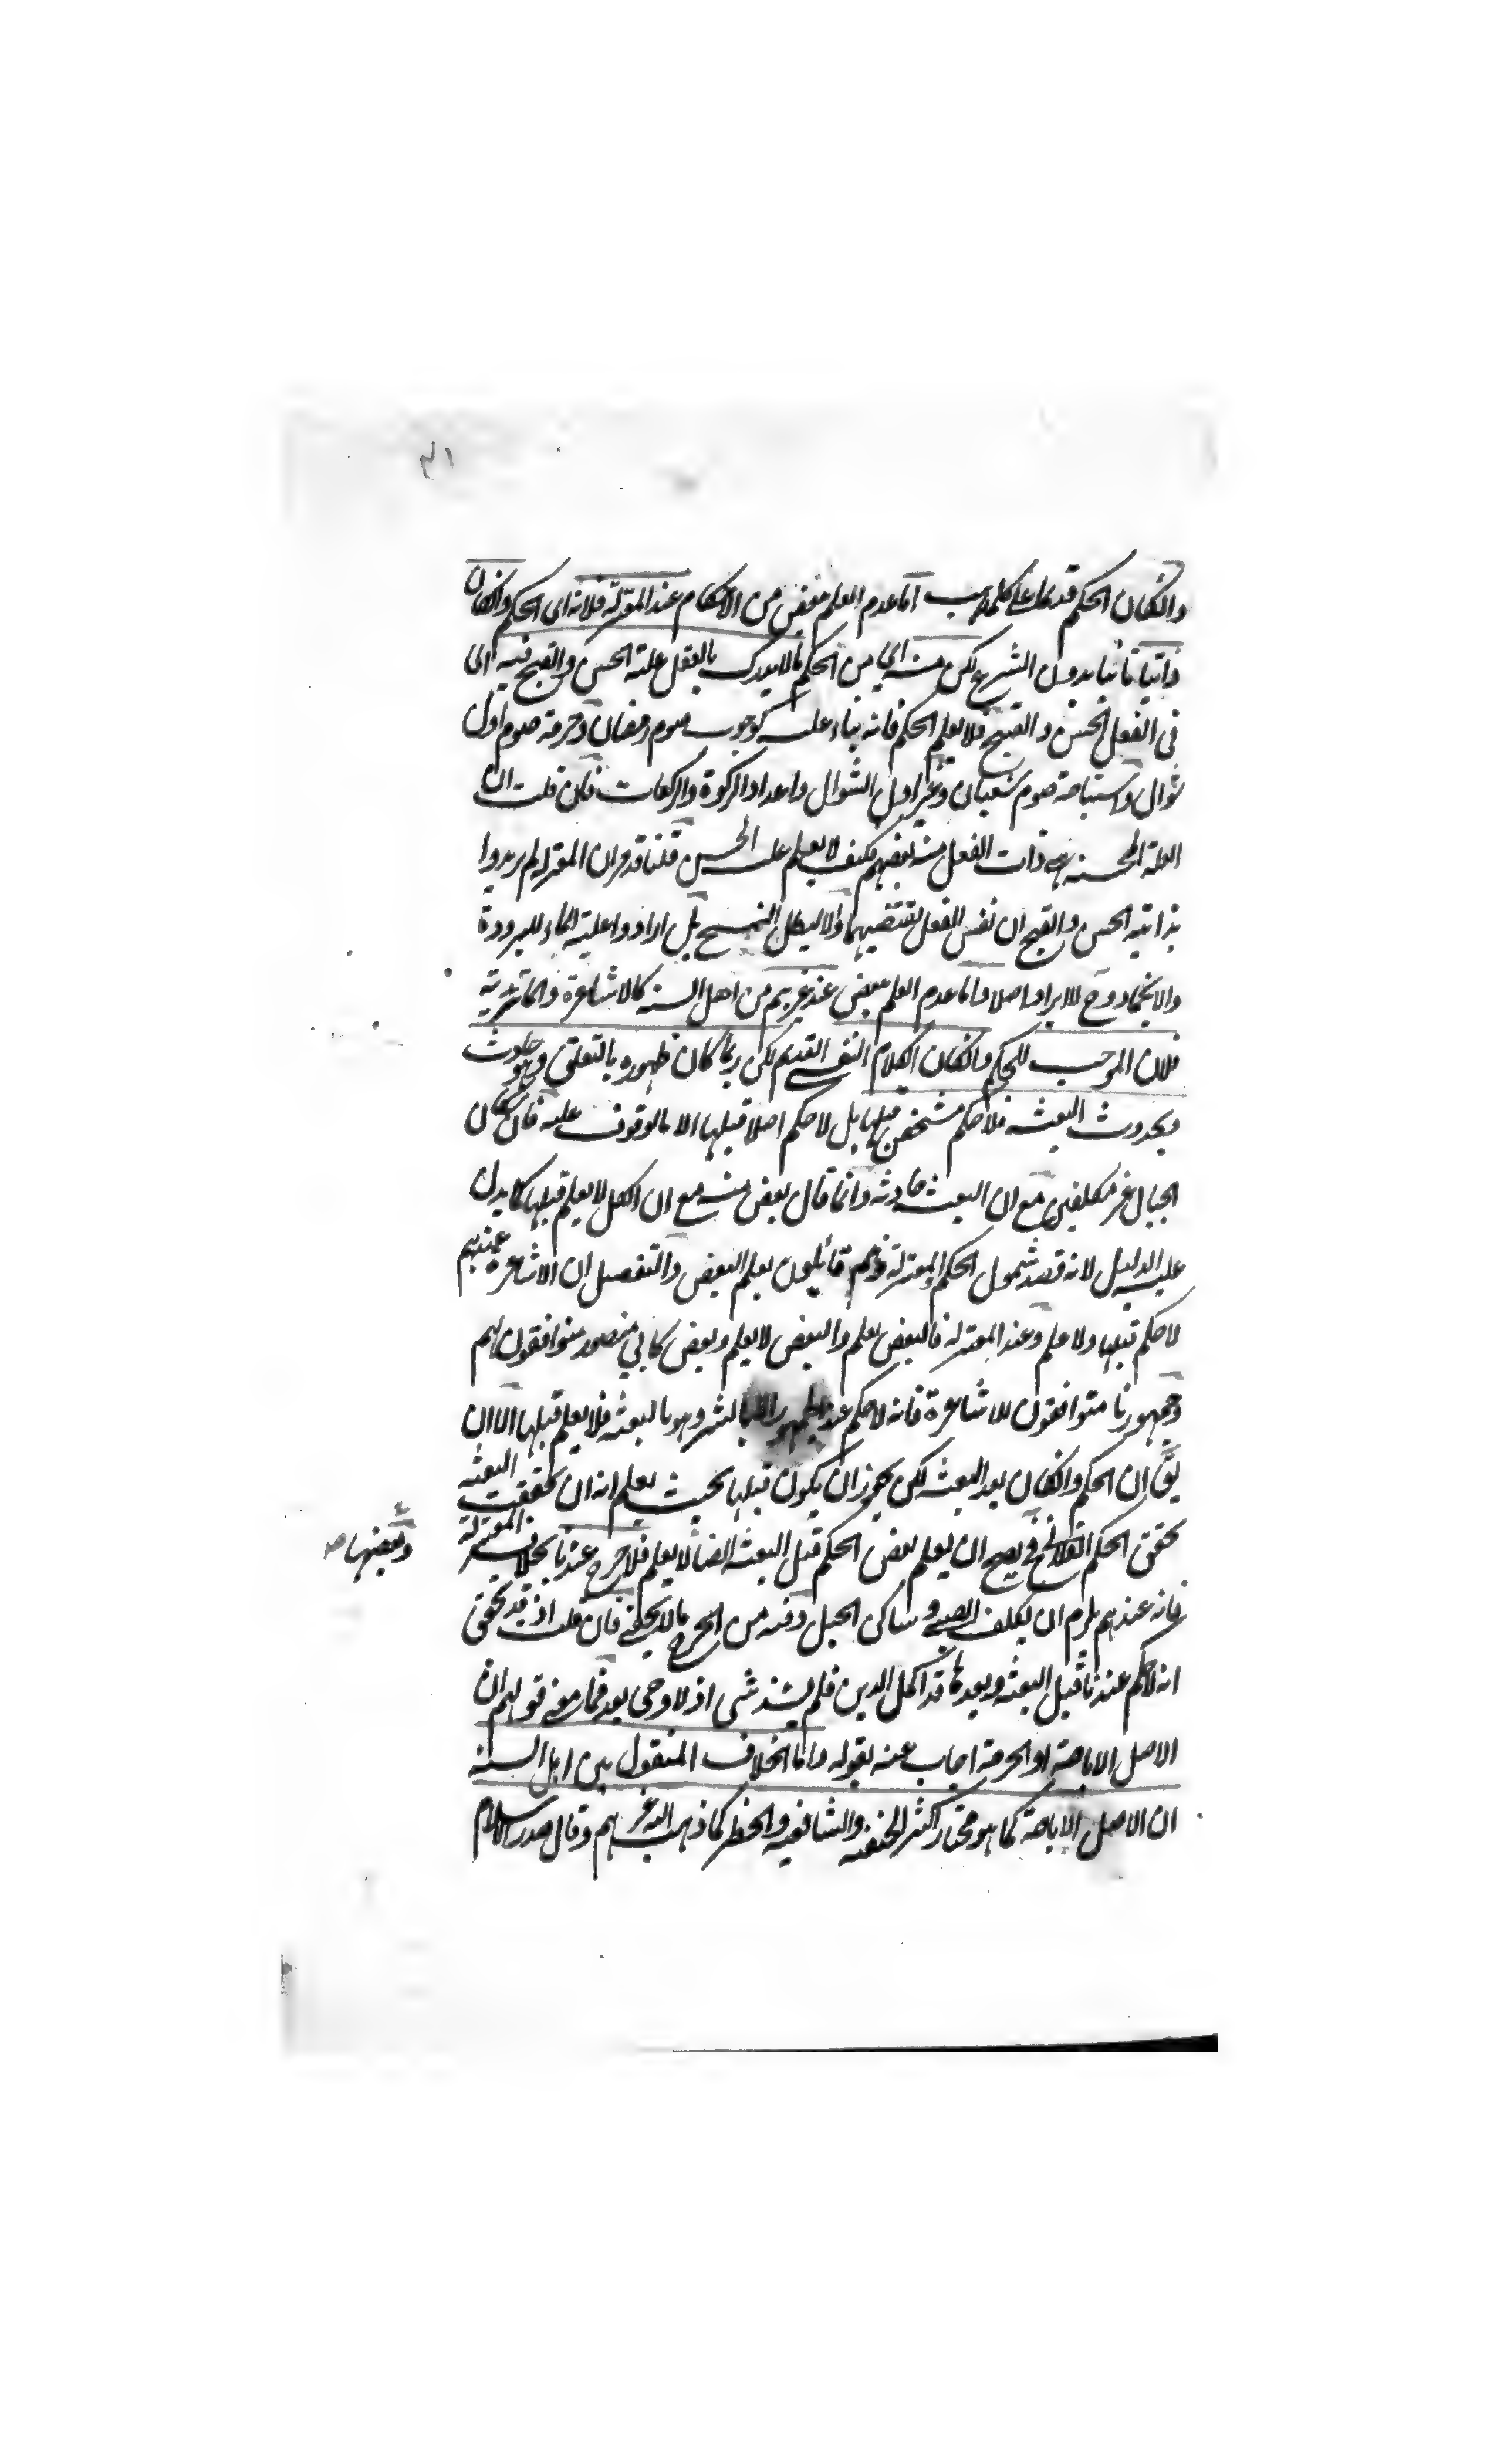 ٣١
والكان الحكم قديما على كل مذهب اما عدم العلم ببعض من الاحكام عند المعتزلة فلانه اى الحكم وانكان
ذاتيا ثابتا بدون الشرع لكن منه اى من الحكم مالا يدرك بالعقل علية الحسن والقبح فيه اى
فى الفعل الحسن والقبيح فلا يعلم الحكم فانه بناء عليه كوجوب صوم رمضان وحرمة صوم اول
شوال واستباحة صوم شعبان وغير اول الشوال واعداد الزكوة والركعات فان قلت ان
العلة المحسنة هى ذات الفعل عند بعضهم فكيف لا يعلم علة الحسن قلنا قد مر ان المعتزلة لم يريدوا
بذاتية الحسن والقبح ان نفس الفعل يقتضيهما والا لبطل النسخ بل ارادوا علية الماء للبرودة
والانجماد وح لا ايراد اصلا واما عدم العلم ببعض عند غيرهم من اهل السنة كالاشاعرة والماتريدية
فلان الموجب للحكم وانكان الكلام النفسى القديم لكن ربما كان ظهوره بالتعلق وهو حادث
بحدوث البعثة فلا حكم مشخص قبلها بل لا حكم اصلا قبلها الا بالوقوف عليه فان سكان
الجبال غير مكلفين مع ان البعث حادثة وانما قال بعض منه مع ان الكل لا يعلم قبلها كما يدل
عليه الدليل لانه قصد شمول الحكم والمعتزلة وهم قائلون بعلم البعض والتفصيل ان الاشاعرة عندهم
لا حكم قبلها ولا علم وعند المعتزلة فالبعض يعلم والبعض لا يعلم وبعض كابى منصور متوافقون لهم
وجمهورنا متوافقون للاشاعرة فانه لا حكم عند الجمهور الا بالشرع وهو بالبعثة فلا يعلم قبلها الا ان
يق ان الحكم وانكان بعد البعثة لكن يجوز ان يكون قبلها بحيث يعلم انه ان تحققت البعثة
تحقق الحكم الفلانى فح يصح ان يعلم بعض الحكم قبل البعثة ايضا لا يعلم فلا حرج عندنا بخلاف المعتزلة
وبعضها صح
فانه عندهم يلزم ان يكلف الصبى وساكن الجبل وفيه من الحرج ما لا يخفى فان قلت اذ قد تحقق
انه لا حكم عندنا قبل البعثة وبعدها قد اكمل الدين فلم يشذ شى اذ لا وحى بعد فما معنى قولهم ان
الاصل الاباحة او الحرمة اجاب عنه بقوله واما الخلاف المنقول بين اهل السنة
ان الاصل الاباحة كما هو مختار اكثر الحنفية والشافعية والحظر كما ذهب اليه غيرهم وقال صدر الاسلام